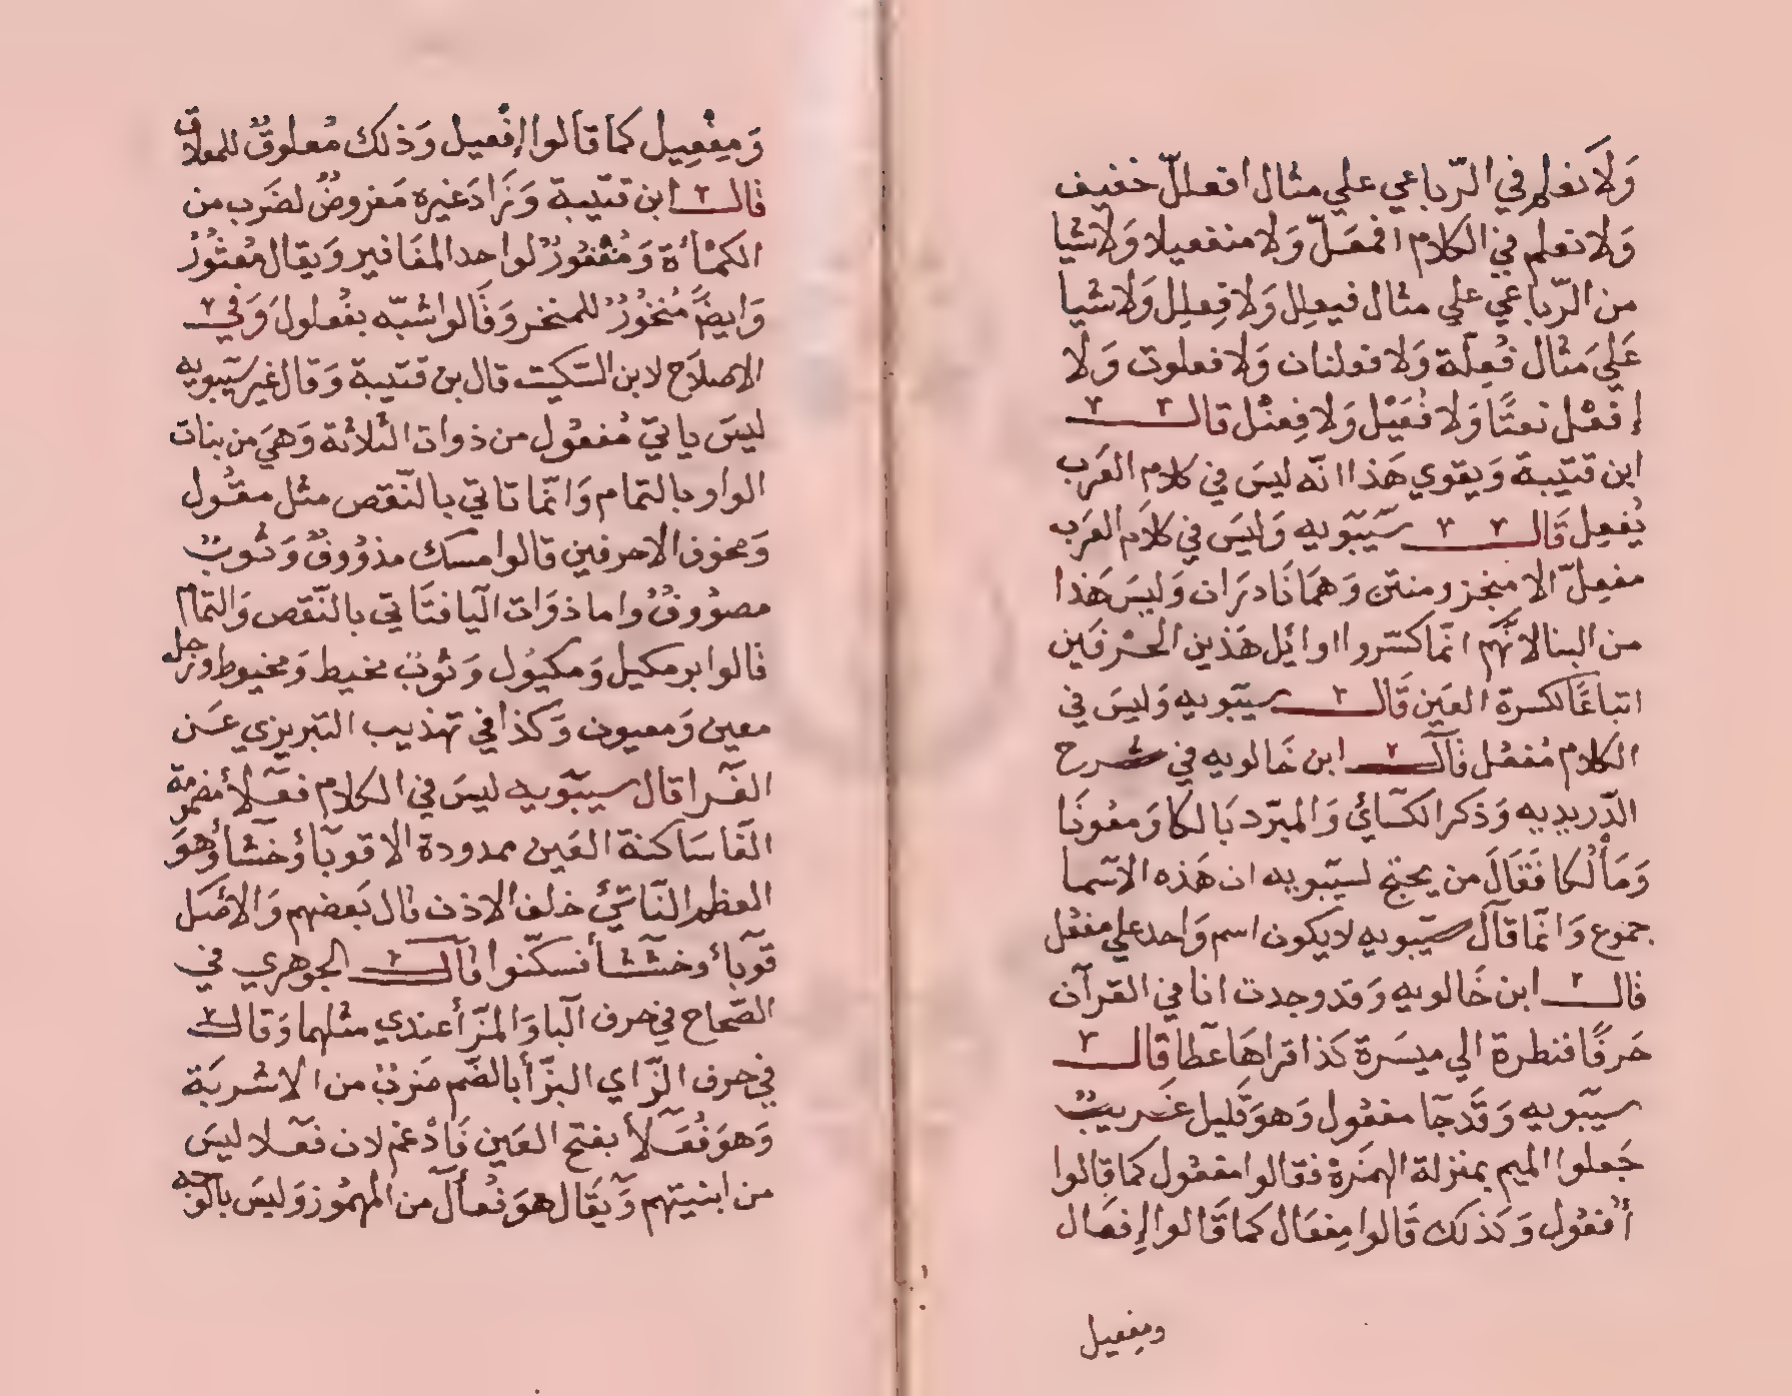 وَلَا نعلم في الرّباعي علي مثال افعللّ خفيف
وَلا نعلم في الكلام افمعَلّ وَلا منفعيلا وَلا شيا
من الرّباعي علي مثال فيعلِل وَلا فِعلِل وَلا شيا
عَلي مَثال فُعِلّة وَلا فعلنان وَلا فعلوت وَلا
إفعْل نعتًا وَلا فُعَيْل وَلا فِعنْل قالــ
ابن قتيبة وَيقوي هَذا انّه ليسَ في كلام العَرب
يُفعِل قَالــ سيبَويه وَليسَ في كلَام العَرب
مفعِلّ الا منخر ومنتن وَهمَا نَادرَان وَليسَ هَذا
من البنا لانّهم انّما كسّروا اوائل هَذين الحْرفَين
اتباعًا لكسرة العَين قَالــ سيبَويه وَليسَ في
الكلام مُفعُل قَالــ ابن خَالويه في شرح
الدّريديه وَذكر الكسَائي وَالمبرّد بَالكا وَمعُونَا
وَمَألُكا فَقَالَ من يحتج لسيبويه ان هَذه الاسمَا
جموع وَانّما قَالَ سيبويه لا يكون اسم وَاحد علي مفعُل
قالــ ابن خَالويه وَقد وجدت انا في القرآن
حَرفًا فنظرة الي ميسَرة كَذا قراهَا عَطا قَالــ
سيبَويه وَقَدجَا مفعُول وَهوَ قَليل غَريبٌ
جَعلوا الميم بمنزلة الهمزة فقالوا مفعُول كما قالوا
أُفعُول وَكذلك قَالوا مِفعَال كما قَالوا إفعَال
ومفعيل
وَمِفْعِيل كما قالوا إفْعيل وَذلك مُعلوقٌ للمعلاق
قالــ ابن قتيبة وَزَادَ غيره مَغروضٌ لضَرب من
الكمْأة وَمُغْفورٌ لواحد المغَافير وَيقال مُغثورٌ
وَايضًا مُنخورٌ للمنخر وَقَالوا شبّه بفُعلول وَفي
الاصلاح لابن السّكيت قال بن قتيبة وَقال غير سيبَويه
ليسَ ياتيّ مُفعُول من ذوات الثلاثة وَهيَ من بنات
الواو بالتمام وَانّما تاتي بالنّقص مثل مقُول
وَمخوف الا حرفين قالوا مسك مذوُوفٌ وَثوبٌ
مصوُوفٌ واما ذوَات اليا فتَاتي بالنّقص وَالتمام
قالوا بر مكيل وَمكيُول وَثوبٌ مخيط وَمخيوط ورجل
معين وَمعيون وَكَذا في تهذيب التبريزي عَن
الفَرا قال سيبَويه ليسَ في الكلام فعَلأ مضمومة
الفَا سَاكنة العَين ممدودة الا قوبَاؤ خشَاؤ وهوَ
العظم النّاتيْ خلف الاذن قال بَعضهم وَالاصَل
قوبَاؤ وخشَشأ فسكّنوا قالــ الجوهري في
الصّحاح في حرف البَا وَالمزّأ عندي مثلهما وَقالــ
في حرف الزَّاي المزّأ بالضّم ضرْبٌ من الاشربَة
وَهوَ فُعَلأ بفتح العَين فَادْغم لان فعّلا ليسَ
من ابنيتهم وَيقَال هوَ فُعأل من المهمُوز وَليسَ بالوجه